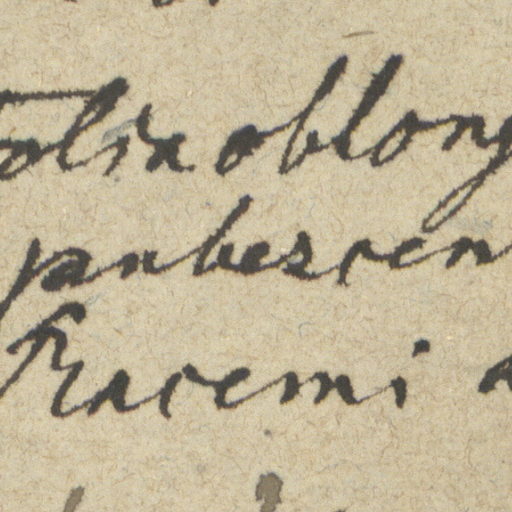 olia oblong
pubescen
Racemi